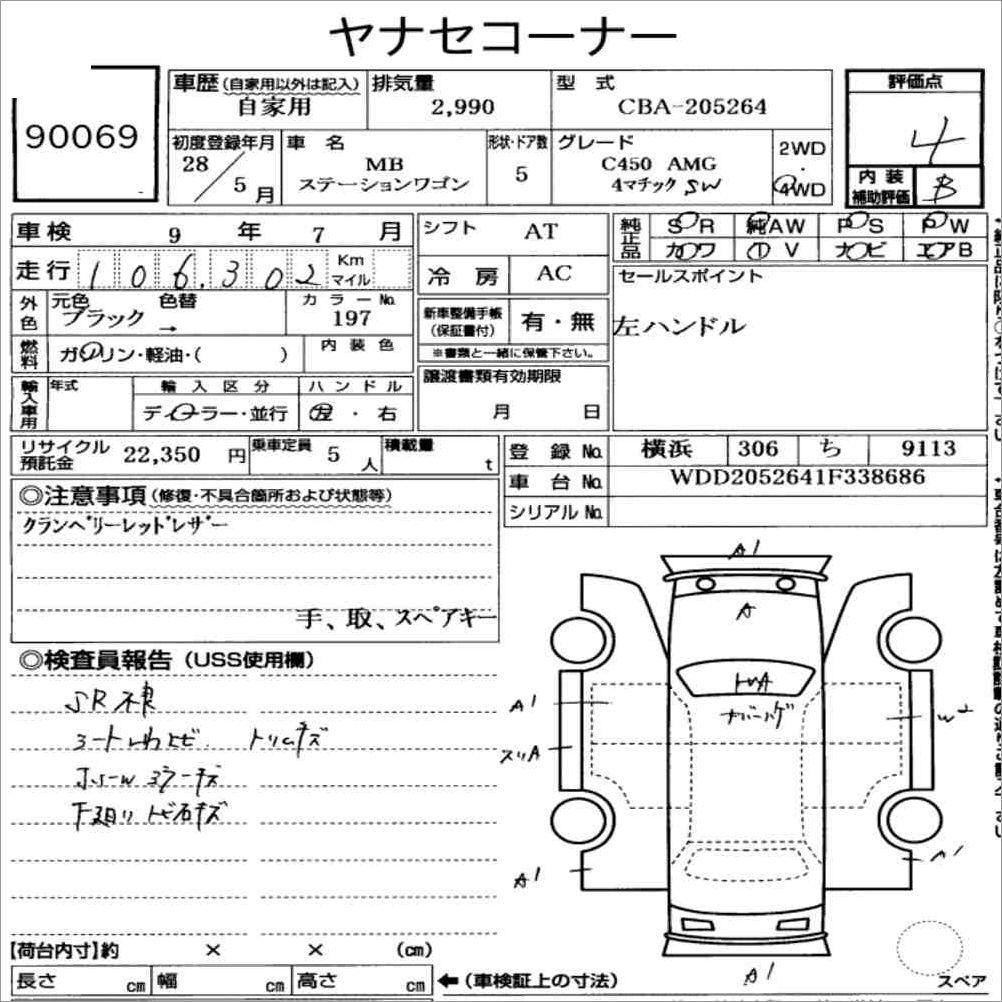 ヤナセコーナー
90069
車歴 (自家用以外は記入) 自家用
排気量 2,990
型 式 CBA-205264
評価点 4
内装補助評価 B
初度登録年月 28/5月
車 名 MB ステーションワゴン
形状・ドア数 5
グレード C450 AMG
4マチック SW
2WD・4WD
車検 9 年 7 月
走行 106,302 Km マイル
外色 元色 ブラック 色替 →
カラーNo. 197
燃料 ガソリン・軽油・( )
内装色
輸入車用 年式
輸入区分 ディーラー・並行
ハンドル 左・右
シフト AT
冷房 AC
新車整備手帳(保証書付) 有・無
※書類と一緒に保管下さい。
譲渡書類有効期限
月 日
純正品 SR 純AW PS PW
カワ TV ナビ エアB
セールスポイント
左ハンドル
リサイクル預託金 22,350 円
乗車定員 5 人
積載量 t
登録No. 横浜 306 ち 9113
車台No. WDD2052641F338686
シリアルNo.
◎注意事項 (修復・不具合箇所および状態等)
クランベリーレッドレザー
手、取、スペアキー
◎検査員報告 (USS使用欄)
SR
トリムキズ
下廻り トビ石キズ
A1
A
A1
スリA
W2
A1
A1
A1
スペア
【荷台内寸】約 × × (cm)
長さ cm 幅 cm 高さ cm
←(車検証上の寸法)